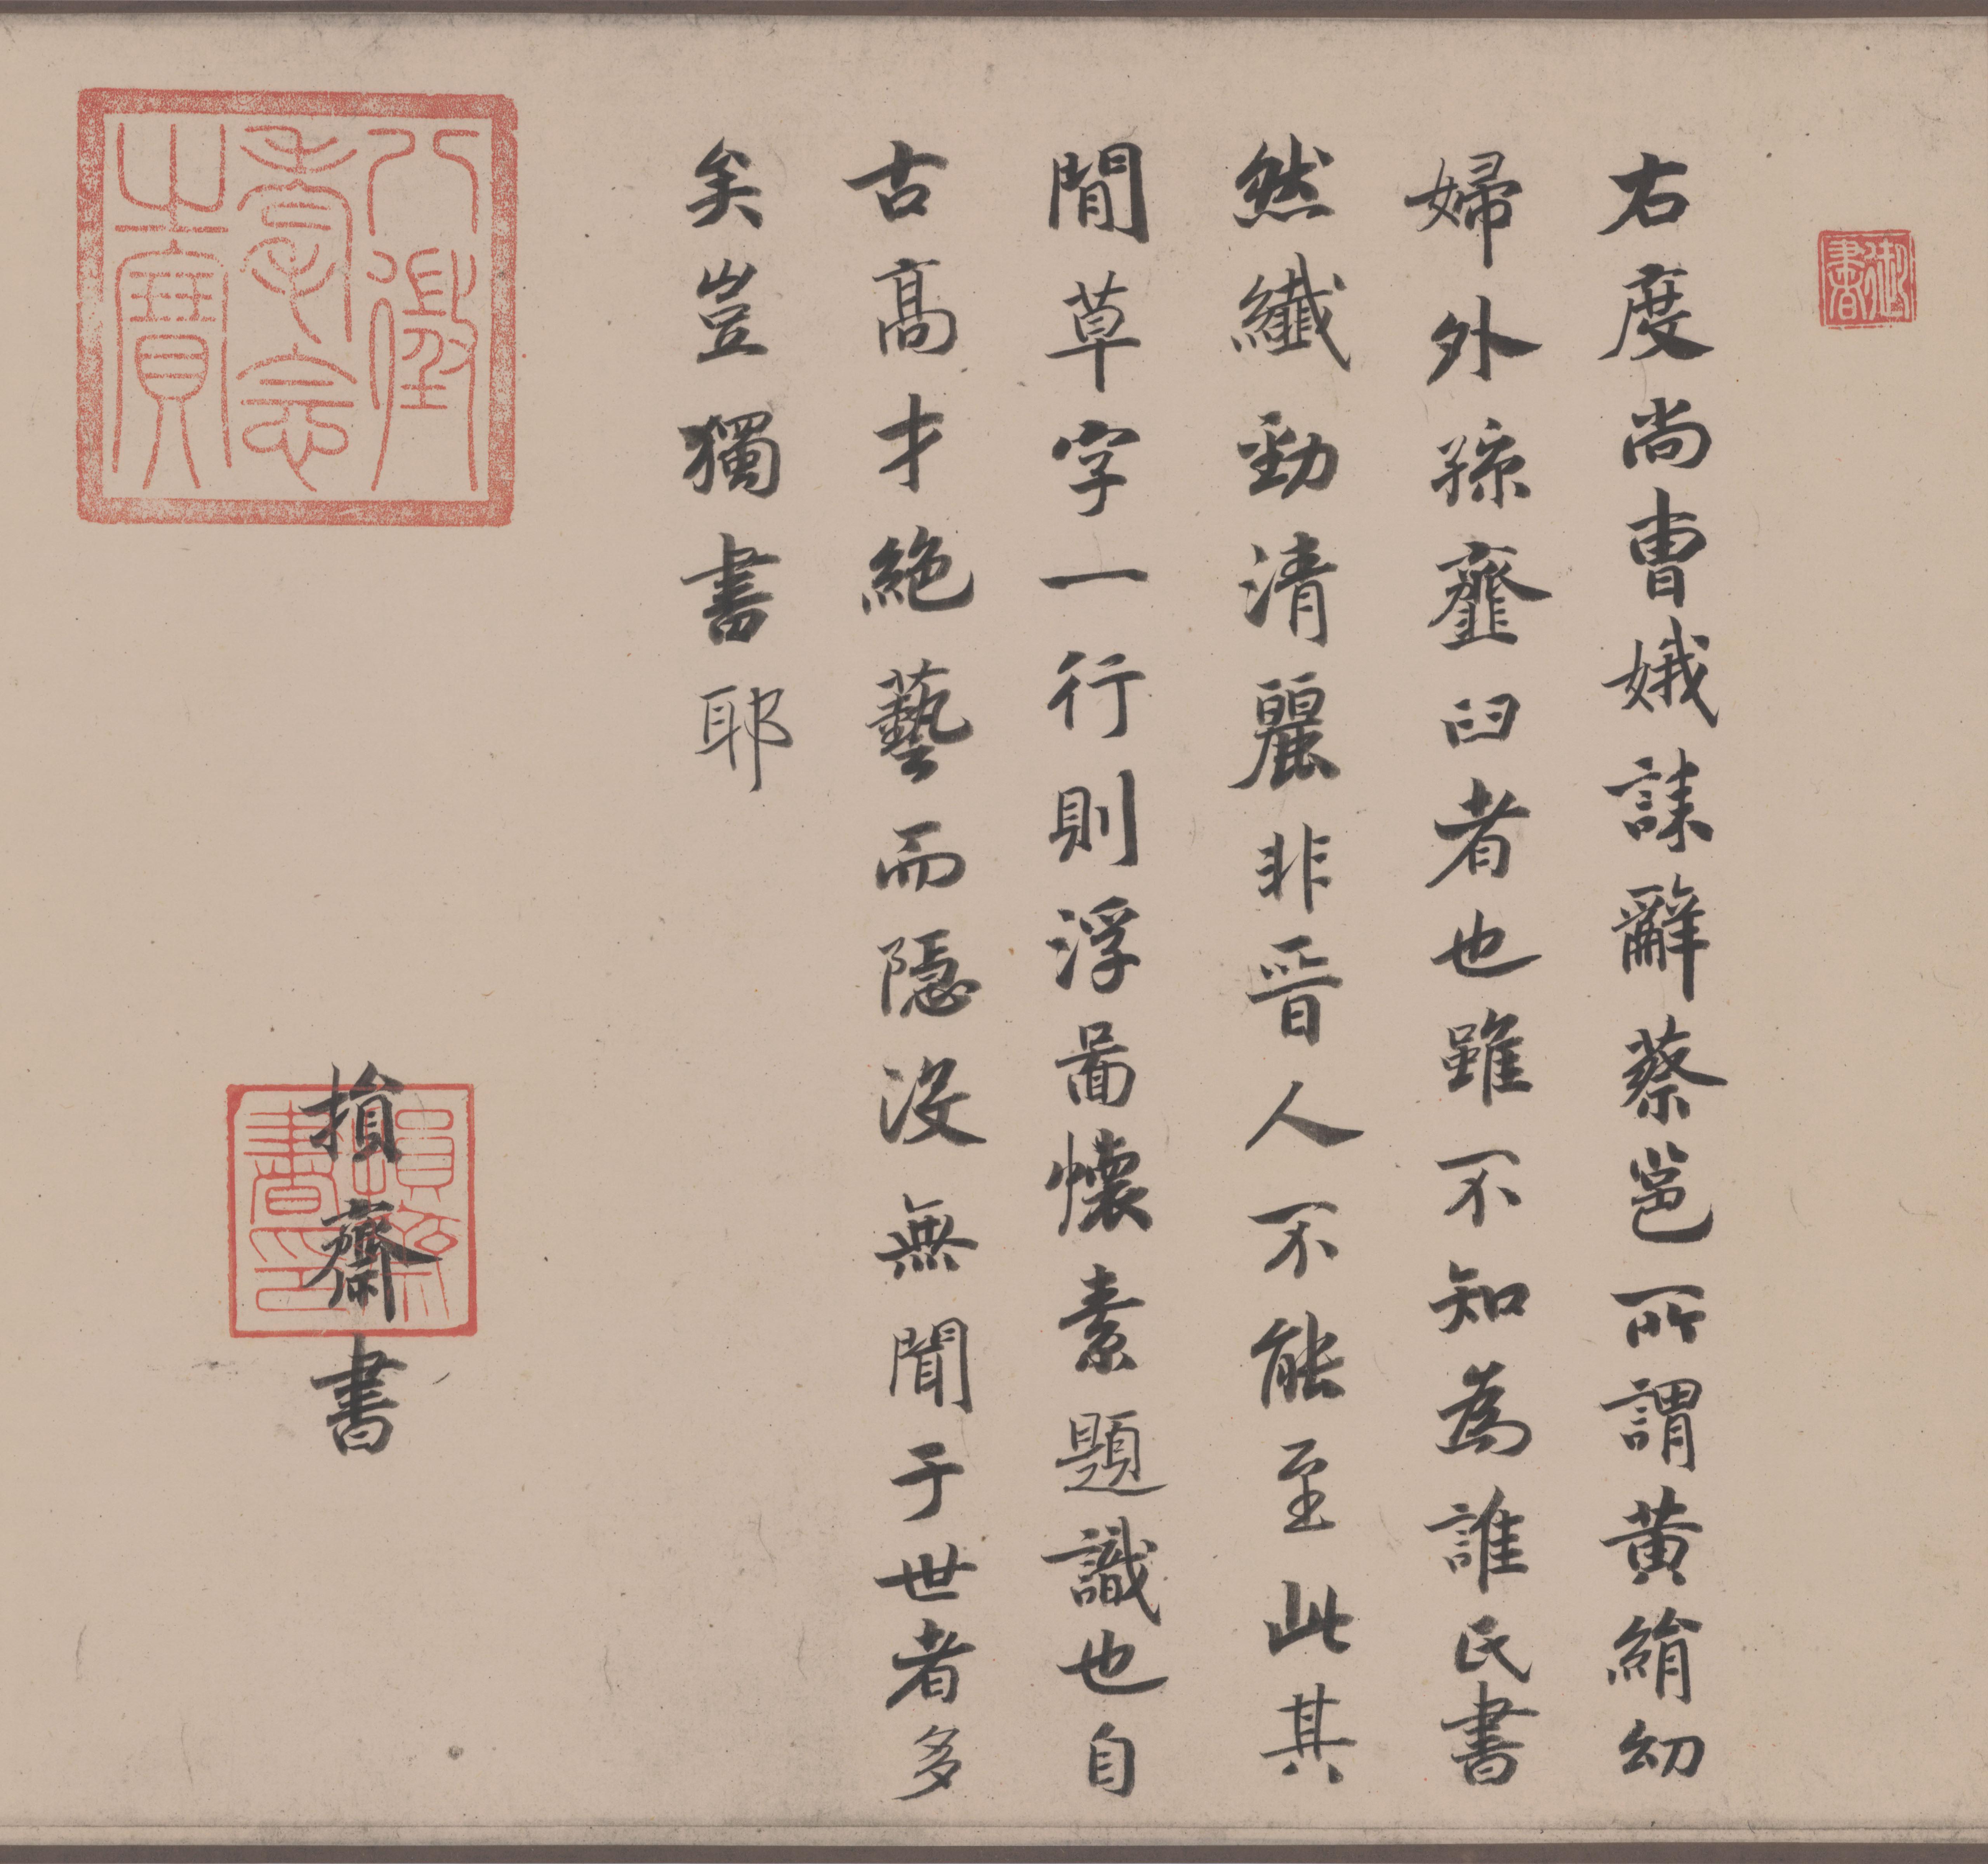 御書
右度尚曹娥誄辭蔡邕所謂黄絹幼
婦外孫韲臼者也雖不知為誰氏書
然纖勁清麗非晉人不能至此其
閒草字一行則浮啚懷素題識也自
古髙才絶藝而隱没無聞于世者多
矣豈獨書耶
損齋書
損齋書印
八徵耄念之寶